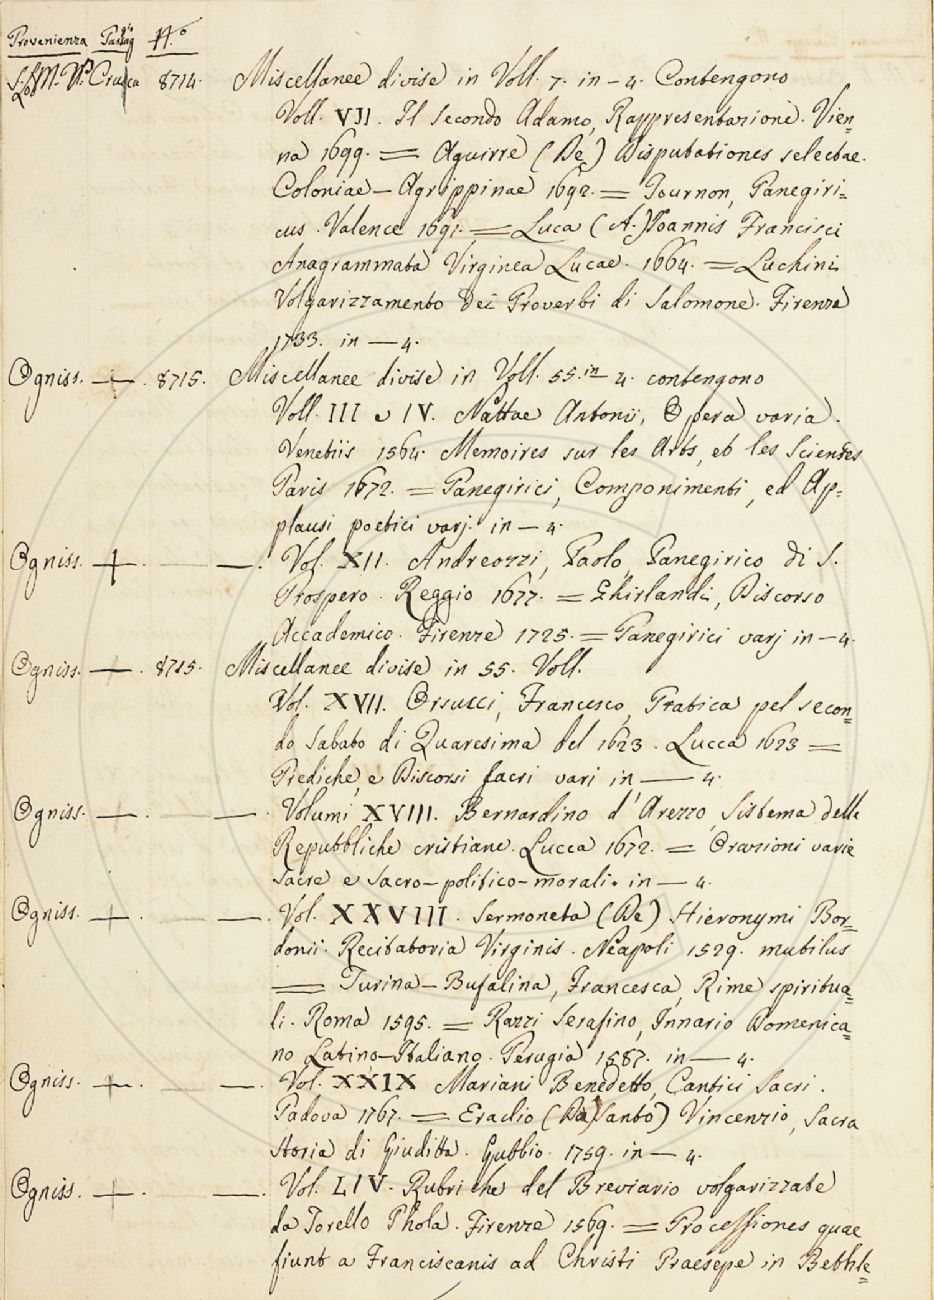 Provenienza Passag. N.º
8714. Miscellanee divise in Voll. 7. in-4. Contengono
Voll. VII. Il Secondo Adamo, Rappresentazione. Vien=
na 1699. = Aguirre (De) Disputationes selectae.
Coloniae-Agrippinae 1692. = Tournon, Panegiri=
cus. Valence 1691. = Luca (A.) Joannis Francisci
Anagrammata Virginea Lucae. 1664. = Luchini
Volgarizzamento dei Proverbi di Salomone. Firenze
1733. in — 4.
Ogniss. — 8715. Miscellanee divise in Voll. 55. in 4. contengono
Voll. III e IV. Nattae Antonii, Opera varia.
Venetiis 1564. Memoires sur les Arts, et les Sciences
Paris 1672. = Panegirici, Componimenti, ed Ap=
plausi poetici varj. in — 4.
Ogniss. + — Vol. XII. Andreozzi, Paolo, Panegirico di S.
Prospero. Reggio 1677. = Ghirlandi, Discorso
Accademico. Firenze 1725. = Panegirici varj in — 4.
Ogniss. + 8715. Miscellanee divise in 55. Voll.
Vol. XVII. Orsucci, Francesco, Pratica pel secon=
do Sabato di Quaresima del 1623. Lucca 1623 =
Prediche, e Discorsi sacri vari in — 4.
Ogniss. + — Volumi XVIII. Bernardino d'Arezzo, Sistema delle
Repubbliche cristiane. Lucca 1672. = Orazioni varie
sacre e sacro-politico-morali. in — 4.
Ogniss. + — Vol. XXVIII. Sermoneta (De) Hieronymi Bor=
donii. Recitatoria Virginis. Neapoli 1529. mutilus
= Turina-Bufalina, Francesca, Rime spiritua=
li. Roma 1595. = Razzi Serafino, Innario Domenica=
no Latino-Italiano. Perugia 1587. in — 4.
Ogniss. + — Vol. XXIX Mariani Benedetto, Cantici Sacri.
Padova 1767. = Eraclio (Da Santo) Vincenzio, Sacra
Storia di Giuditta. Gubbio. 1759. in — 4.
Ogniss. + — Vol. LIV. Rubriche del Breviario volgarizzate
da Torello Phola. Firenze 1569. = Processiones quae
fiunt a Franciscanis ad Christi Praesepe in Bethle=